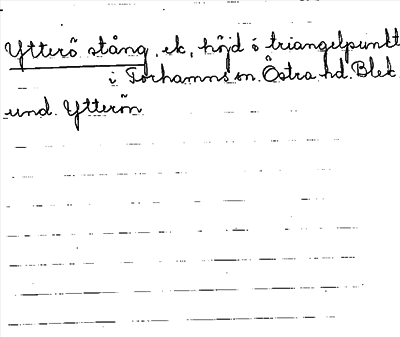 Ytterö stång, ek, höjd ó triangelpunkt
i Torhamns sn. Östra hd. Blek
und. Ytterön